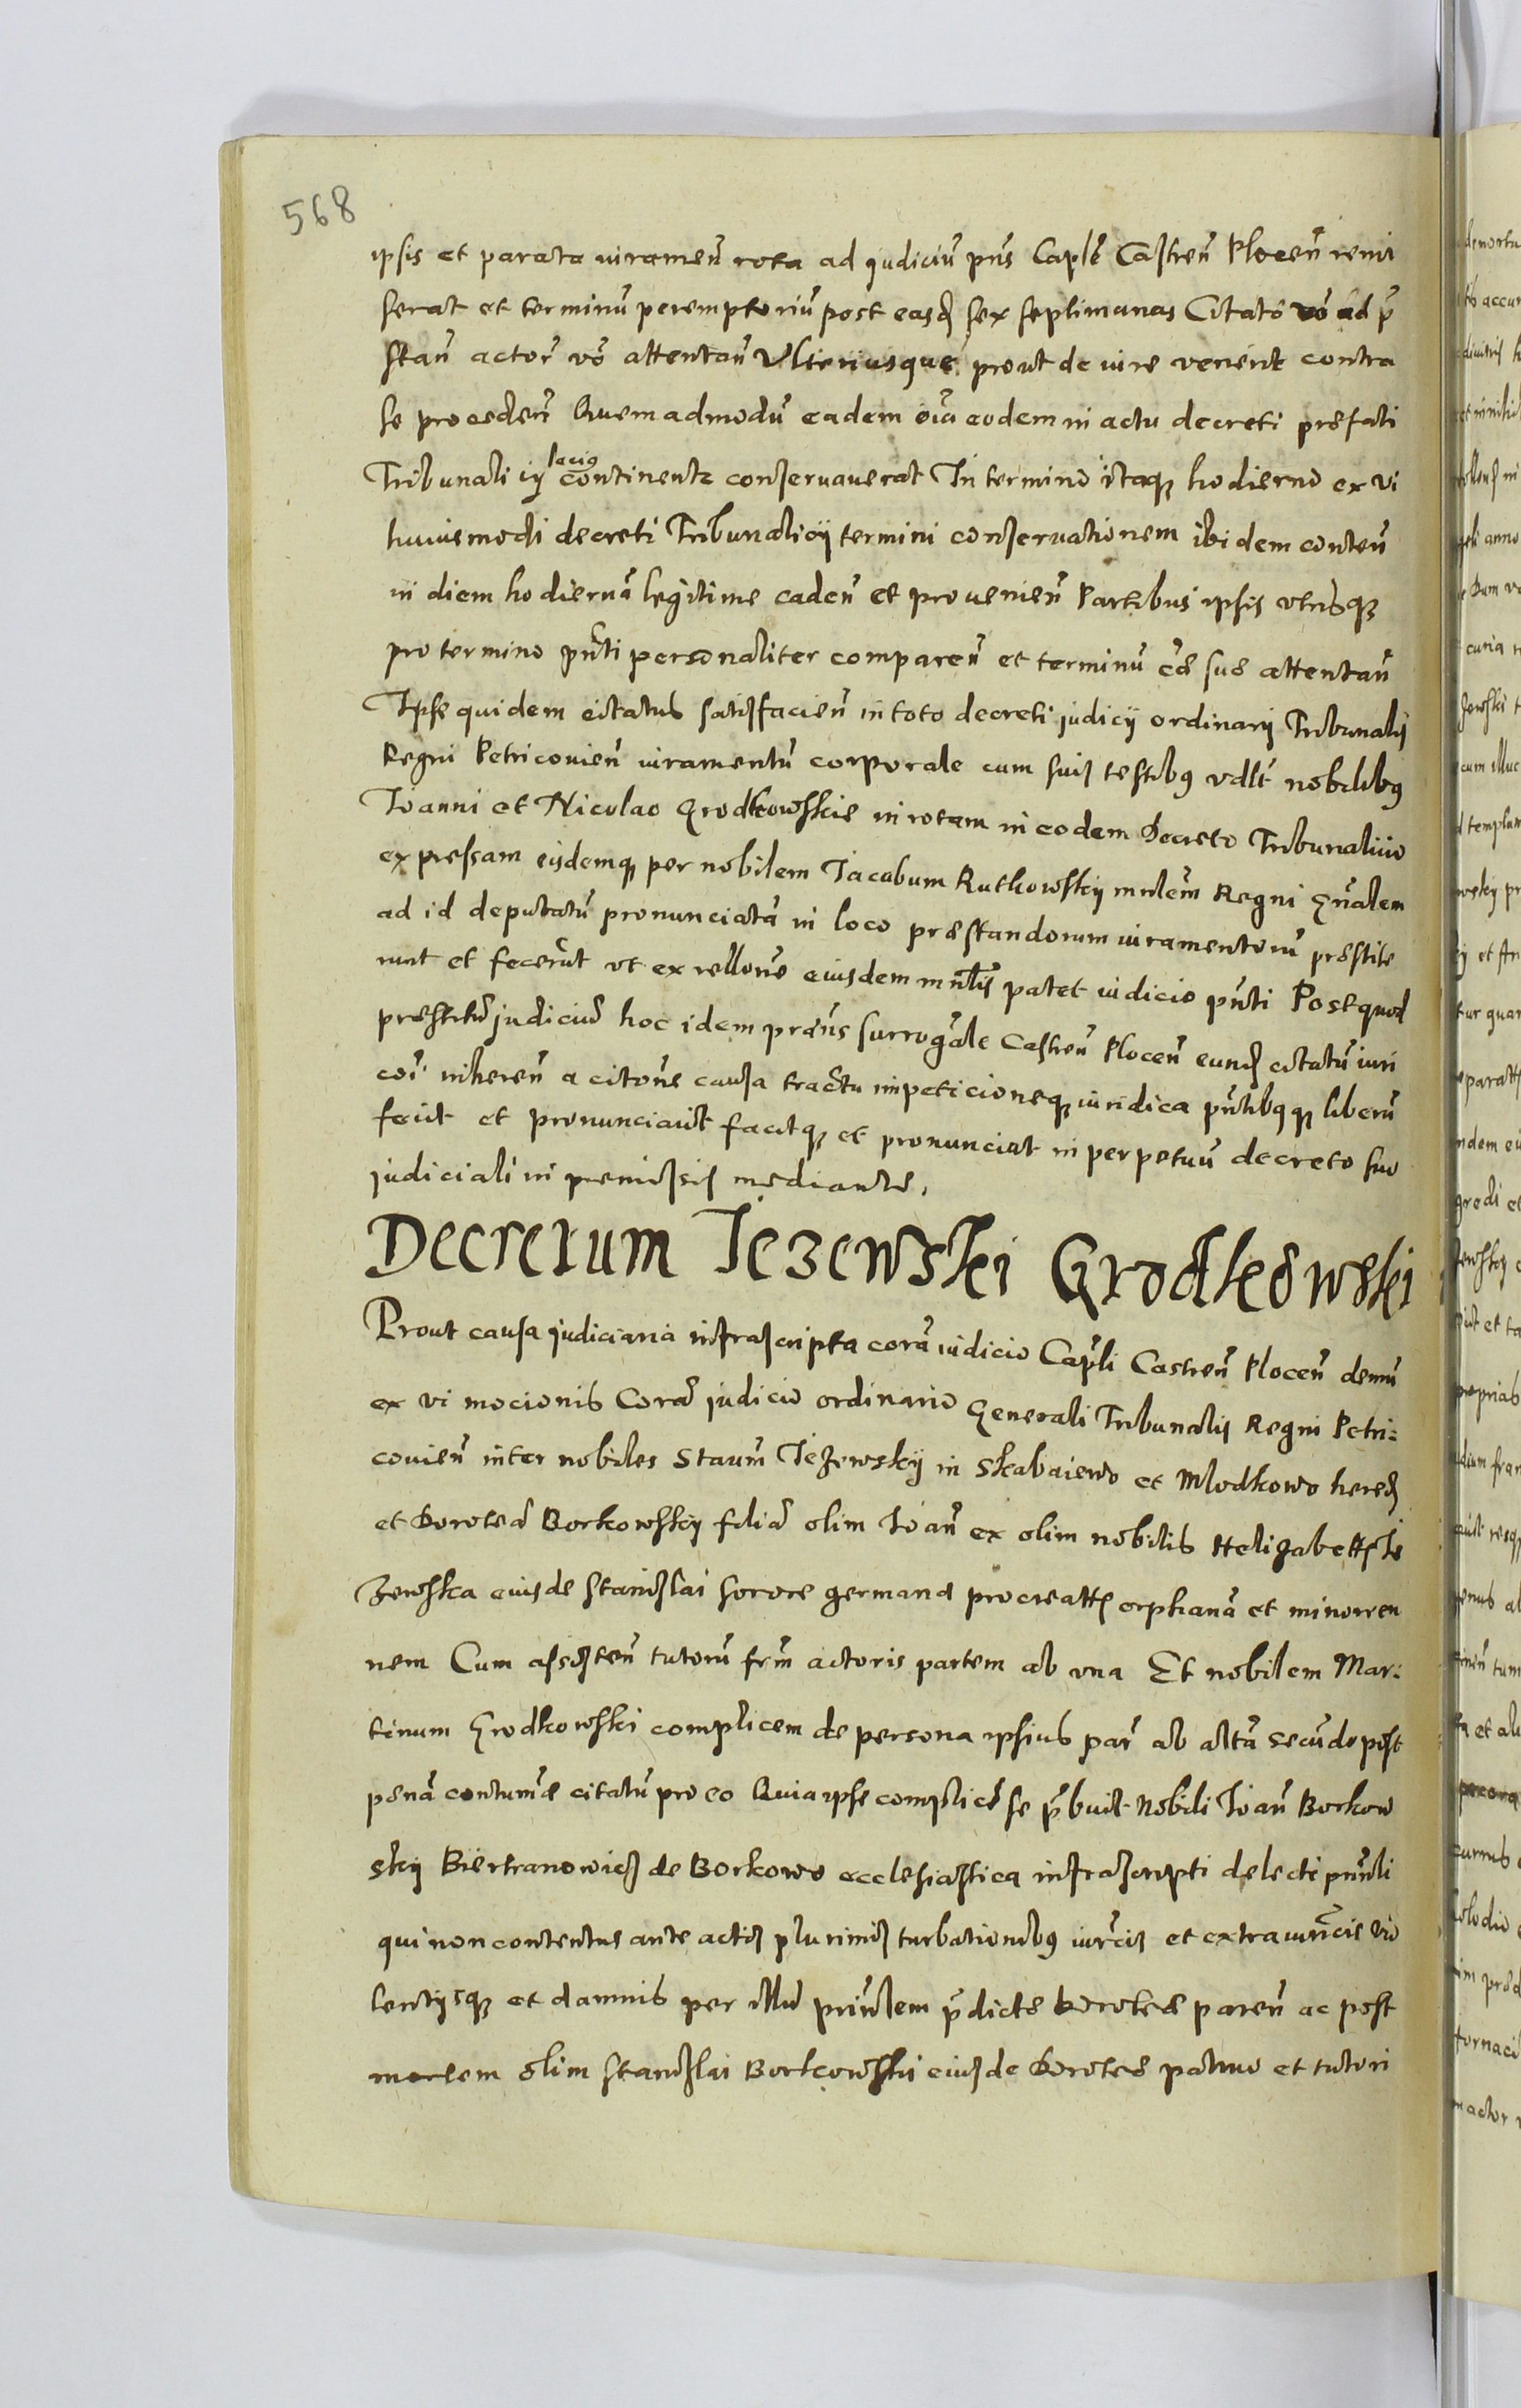 568
ipsis et parata iuramen̄ rota ad judiciū pn̄s Caplē Castren̄ Plocen̄ remi
serat et terminū peremptoriū post easd sex septimanas Citato vō ad p̄
stan̄ actor̄ vō attentan̄ Vlteriusque prout de iure venerit contra
se proceden̄ Quemadmodū eadem oīa eodem in actu decreti præfati
Tribunalicij lacius continente conseruauerat In termino itaq hodierno ex vi
huiusmodi decreti Tribunalicij termini conseruationem ibidem conten̄
in diem hodiernā legitime caden̄ et prouenien̄ Partibus ipsis vtrisq
pro termino pn̄ti personaliter comparen̄ et terminū cā suæ attentan̄
Ipse quidem citatus satisfacien̄ in toto decreti judicij ordinarij Tribunalis
Regni Petricouien̄ iuramentū corporale cum suis testibus vdlt nobilibus
Joanni et Nicolao Grodkowskie in rotam in eodem Decreto Tribunalitio
expressam eisdemq per nobilem Jacobum Rutkowskij mnlēm Regni Gn̄alem
ad id deputatū pronunciatā in loco præstandorum iuramentorū præstite
runt et fecerūt vt ex rellone eiusdem mn̄lis patet iudicio pn̄ti Postquod
præstitū judiciū hoc idem præns surrogāle Castren̄ Plocen̄ eund citatū iuri
coī inheren̄ a citone causa tractu impeticioneq iuridica pn̄tibqq liberū
fecit et pronunciauit facitq et pronunciat in perpetuū decreto suo
judiciali in premissis mediante,
Decretum Jezewski Grodkowski
Prout causa judiciaria infrascripta corā iudicio Cap̄li Castren̄ Plocen̄ demū
ex vi mocionis Corā judicio ordinario Generali Tribunalis Regni Petri=
couien̄ inter nobiles Staum̄ Jezewskij in Skabaiewo et Mlodkowo hered
et Doroteā Borkowskij filiā olim Joan̄ ex olim nobilis Helizabett Je
zewska eiusde Stanislai sorore germana procreatt orphanā et minorren
nem Cum assisten̄ tutorū frm̄ actoris partem ab vna Et nobilem Mar=
tinum Grodkowski complicem de persona ipsius par̄ ab altā secūdo post
pœnā contumā citatū pro eo Quia ipse complicē se p̄buit Nobili Joan̄ Borkow
skij Biertranowicz de Borkowo ecclesiastica infrascripti delecti prin̄li
qui non contentus ante actis plurimis turbationibus iur̄cis et extraiur̄cis vio
lentijsq et damnis per illū prin̄lem p̄dictæ Doroteæ paren̄ ac post
mortem olim Stanislai Borkowski eiusde Doroteæ patruo et tutori